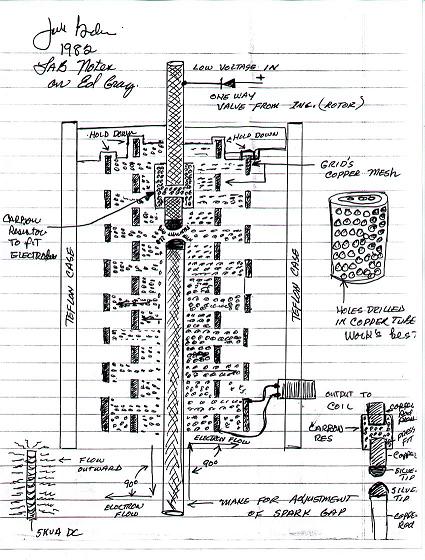 1982
LAB Notes
on Ed Gray.
LOW VOLTAGE IN
+
ONE WAY
VALVE FROM ING. (ROTOR)
HOLD DOWN
HOLD DOWN
GRID'S
COPPER MESH
CARBON
RESISTOR
TO FIT
ELECTRODE
TEFLON CASE
TEFLON CASE
HOLES DRILLED
IN COPPER TUBE
WORK'S BEST
OUTPUT TO
COIL
CARBON
RES
COPPER
ROD FROM
PRESS
FIT
COPPER
SILVE.
TIP
SILVE.
TIP
COPPER
ROD
ELECTRON FLOW
90°
FLOW
OUTWARD
90°
ELECTRON
FLOW
MAKE FOR ADJUSTMENT
OF SPARK GAP
5KVA DC